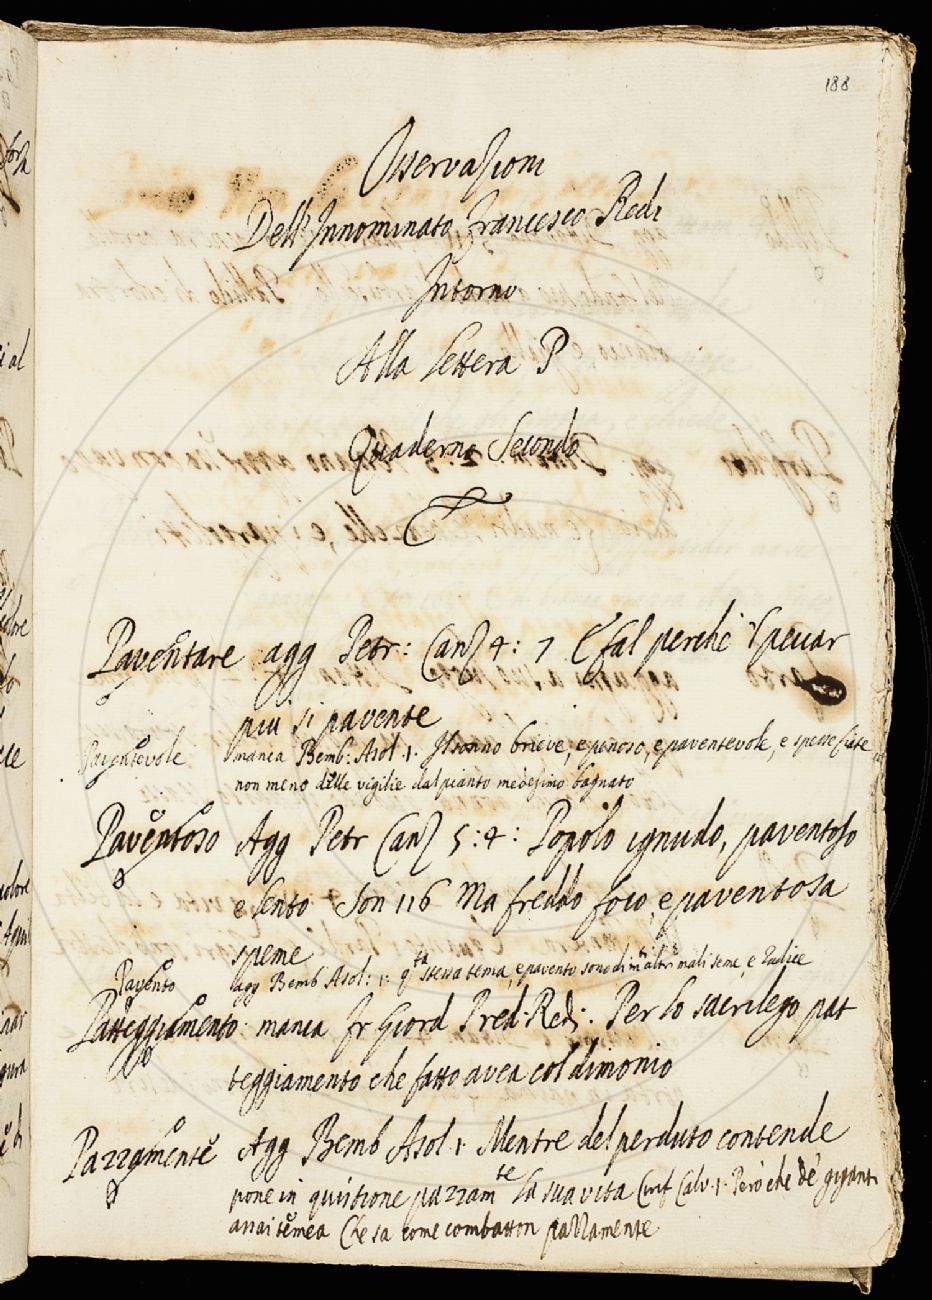 188
Osservazioni
Dell' Innominato Francesco Redi
Intorno
Alla lettera P
Quaderno Secondo
Paventare agg Petr: Canz 4: 7 E fal perchè 'l peccar
piu si pavente
Paventevole manca Bemb. Asol. 1. Il sonno brieve, e penoso, e paventevole, e spesse fiate
non meno delle vigilie dal pianto medesimo bagnato
Paventoso Agg Petr Canz 5: 4: Popolo ignudo, paventoso
e lento Son 116 Ma freddo foco, e paventosa
speme
Pavento agg Bemb Asol: 1. q.ta stessa tema, e pavento sono di m altri mali seme, e radice
Patteggiamento: manca Fr Giord Pred: Red: Per lo sacrilego pat
teggiamento che fatto avea col dimonio
Pazzamente Agg Bemb Asol 1. Mentre del perduto contende
pone in quistione pazzam.te la sua vita Cirif Calv. 1. Però che de' giganti
assai temea Che sa come combatton pazzamente